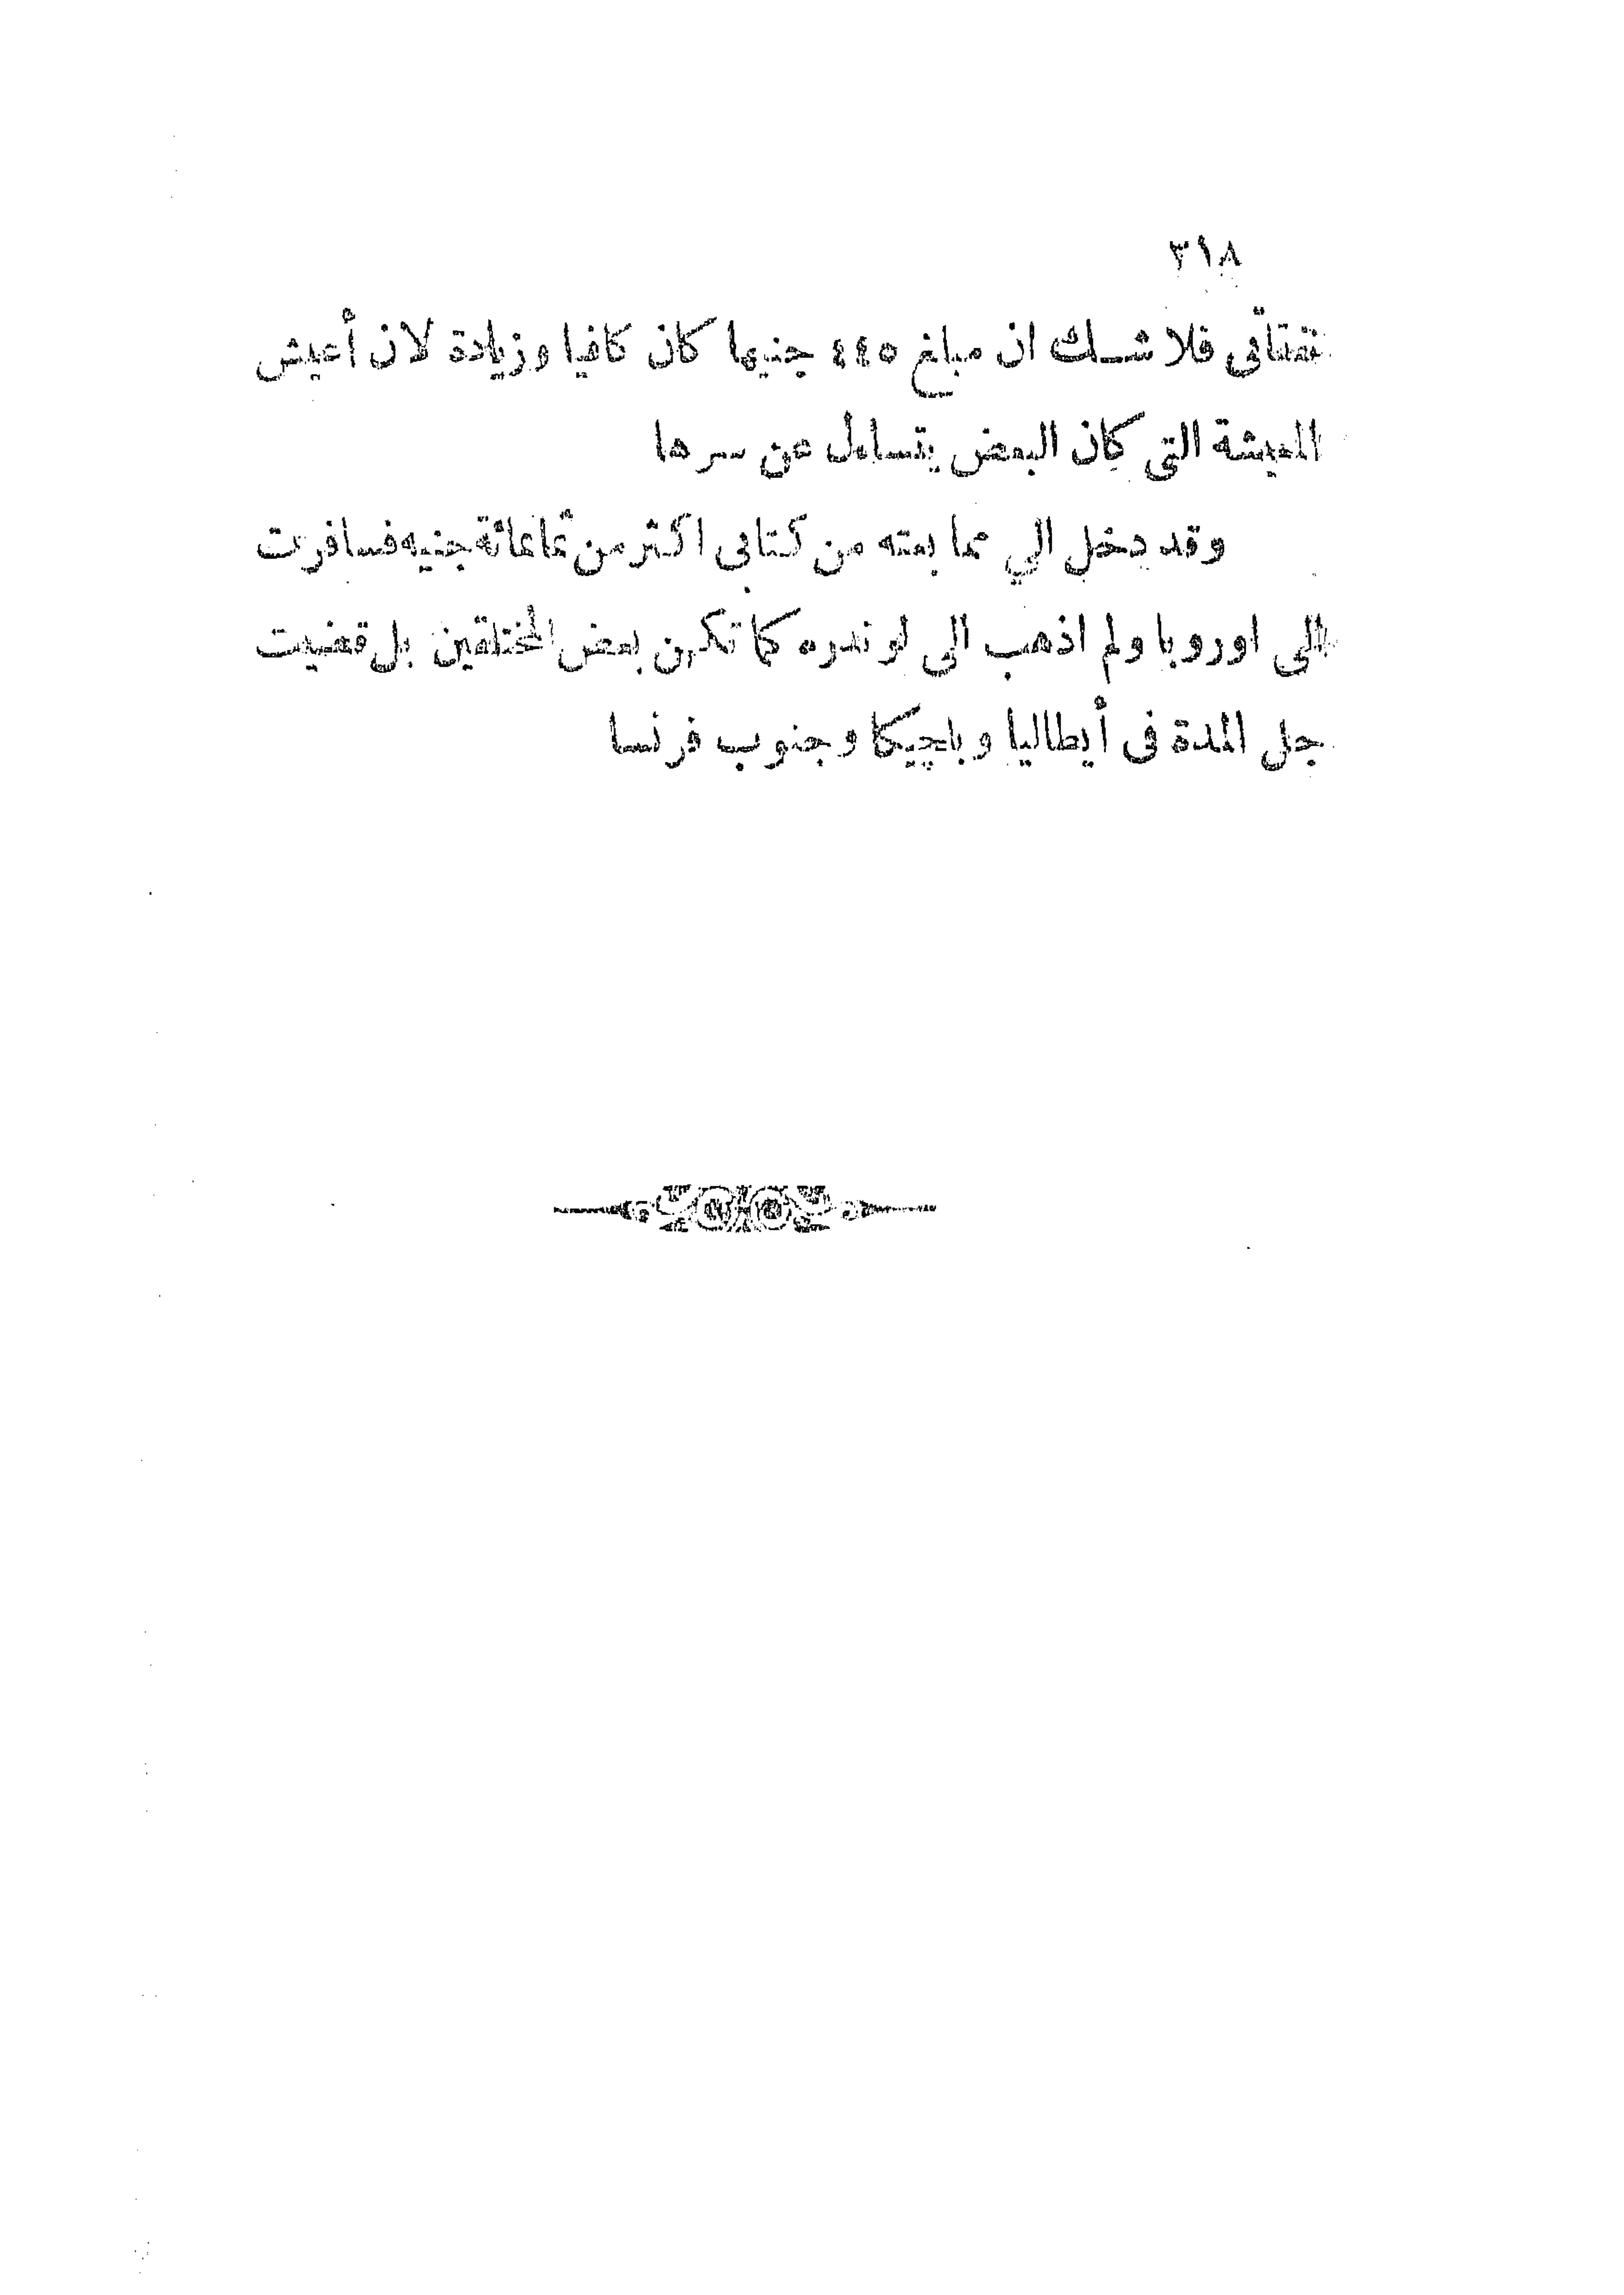 ٣١٨
نفقاتى فلا شك ان مبلغ ٤٤٥ جنيها كان كافيا وزيادة لان أعيش
المعيشة التى كان البعض يتساءل عن سرها
وقد دخل الي مما بعته من كتابى اكثر من ثمانمائة جنيه فسافرت
الى اوروبا ولم اذهب الى لوندره كما تكهن بعض المختلقين بل قضيت
جل المدة فى أيطاليا وبلچيكا وجنوب فرنسا